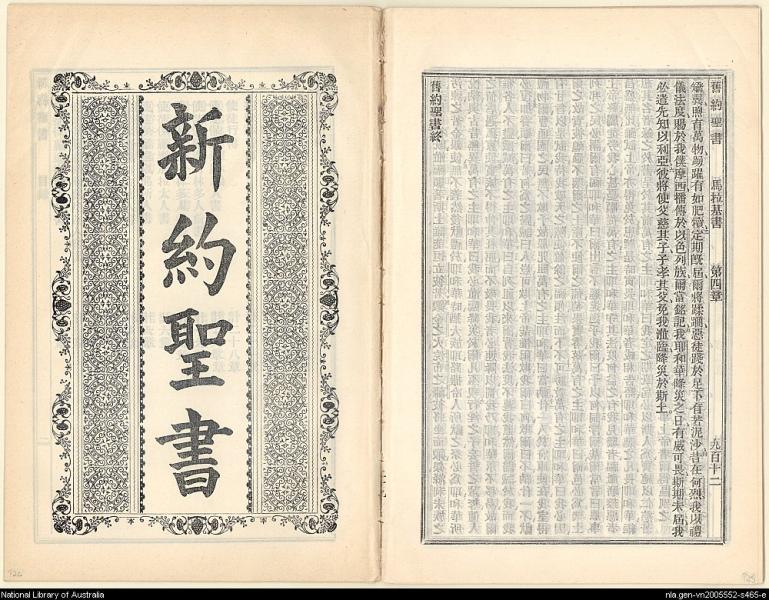 舊約聖書 馬拉基書 第四章 九百十二
萬物踴躍有如肥犢定期旣屆爾將蹂躪惡徒踐於足下有若泥沙昔在何烈我以禮
儀法度賜於我僕摩西播傳於以色列族爾當銘記我耶和華降災之日有威可畏斯期未屆我
必遣先知以利亞彼將使父慈其子子孝其父免我涖臨降災於斯土。
舊約聖書終
新約聖書
National Library of Australia
nla.gen-vn2005552-s465-e